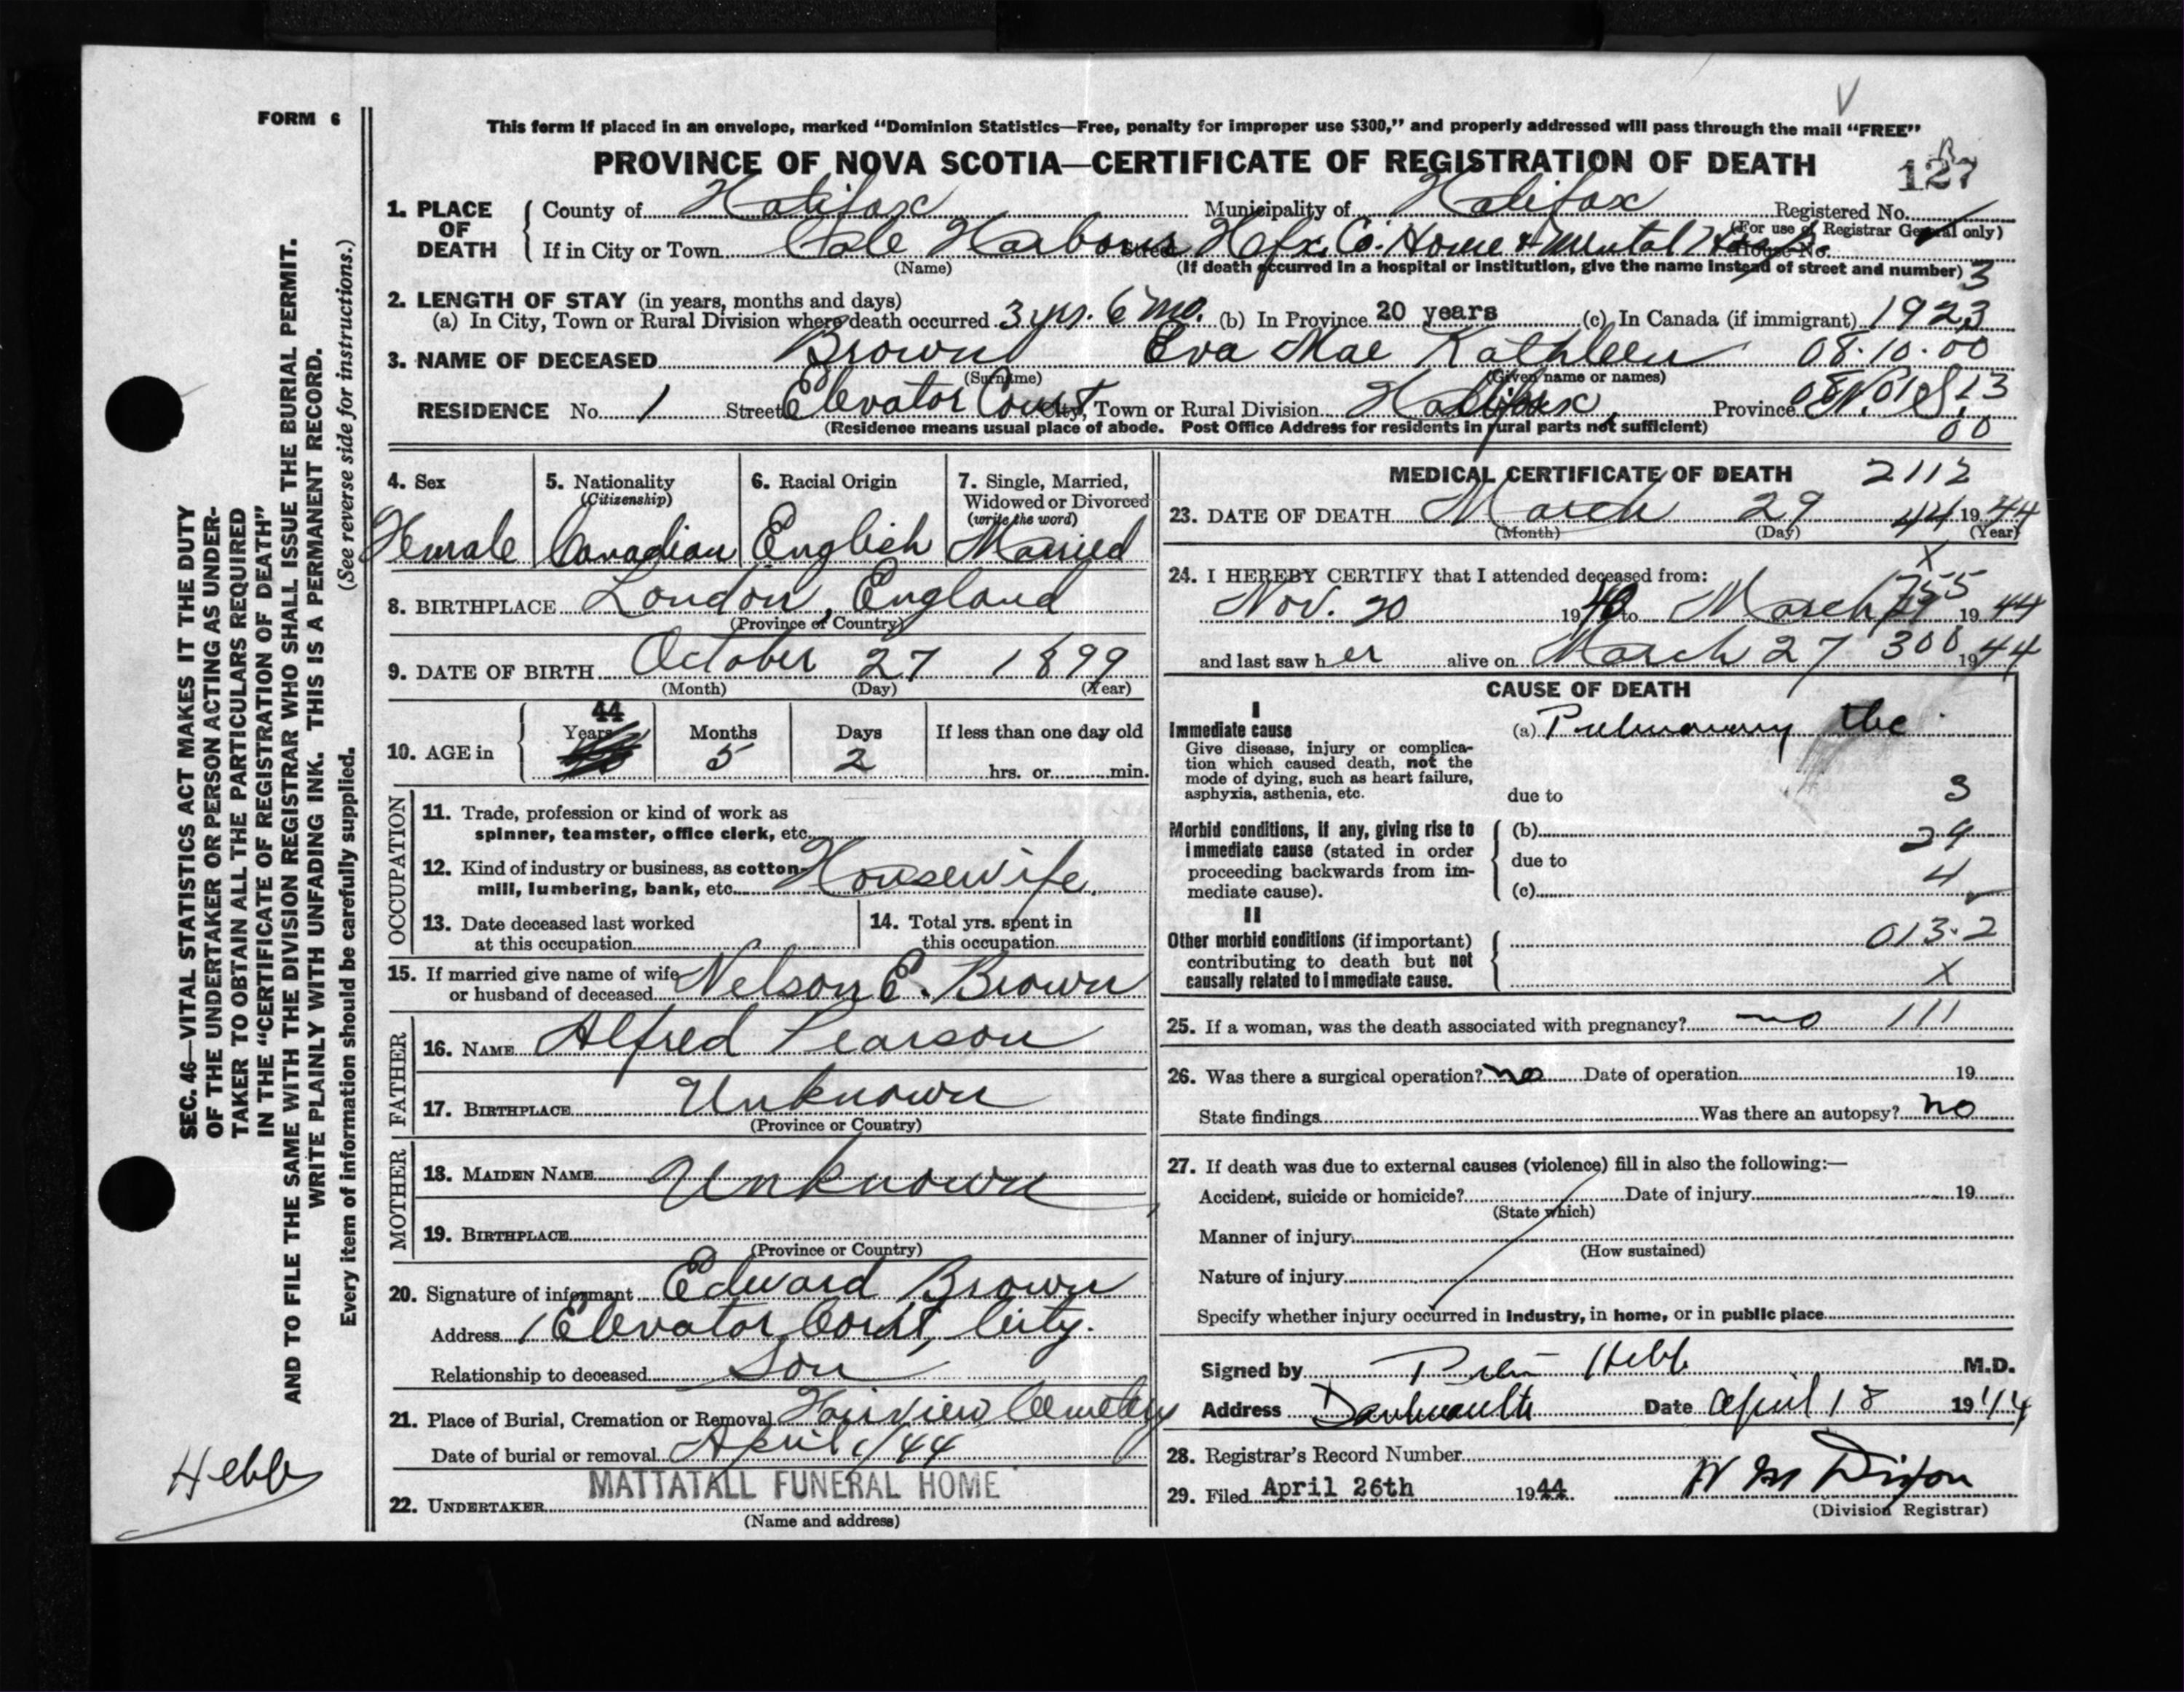 FORM 6
This form if placed in an envelope, marked "Dominion Statistics—Free, penalty for improper use $300," and properly addressed will pass through the mail "FREE"
PROVINCE OF NOVA SCOTIA—CERTIFICATE OF REGISTRATION OF DEATH
127
1. PLACE OF DEATH
County of Halifax Municipality of Halifax Registered No.
(For use of Registrar General only)
If in City or Town Cole Harbour Street Hfx. Co. Home & Mental Hosp. House No.
(Name) (If death occurred in a hospital or institution, give the name instead of street and number) 3
2. LENGTH OF STAY (in years, months and days)
(a) In City, Town or Rural Division where death occurred 3 yrs. 6 mo. (b) In Province 20 years (c) In Canada (if immigrant) 1923
3. NAME OF DECEASED Brown Eva Mae Kathleen 08.10.00
(Surname) (Given name or names)
RESIDENCE No. 1 Street Elevator Court City, Town or Rural Division Halifax, Province N.S.
(Residence means usual place of abode. Post Office Address for residents in rural parts not sufficient) 00
4. Sex 5. Nationality (Citizenship) 6. Racial Origin 7. Single, Married, Widowed or Divorced (write the word)
Female Canadian English Married
8. BIRTHPLACE London, England
(Province or Country)
9. DATE OF BIRTH October 27 1899
(Month) (Day) (Year)
10. AGE in Years 44 Months 5 Days 2 If less than one day old
hrs. or min.
OCCUPATION
11. Trade, profession or kind of work as
spinner, teamster, office clerk, etc.
12. Kind of industry or business, as cotton-
mill, lumbering, bank, etc. Housewife.
13. Date deceased last worked
at this occupation
14. Total yrs. spent in
this occupation
15. If married give name of wife
or husband of deceased Nelson E. Brown
FATHER
16. NAME Alfred Pearson
17. BIRTHPLACE Unknown
(Province or Country)
MOTHER
18. MAIDEN NAME Unknown
19. BIRTHPLACE
(Province or Country)
20. Signature of informant Edward Brown
Address 1 Elevator Court, City.
Relationship to deceased Son
21. Place of Burial, Cremation or Removal Fairview Cemetery
Date of burial or removal April 1/44
MATTATALL FUNERAL HOME
22. UNDERTAKER
(Name and address)
MEDICAL CERTIFICATE OF DEATH 2112
23. DATE OF DEATH March 29 44 1944
(Month) (Day) (Year)
X
24. I HEREBY CERTIFY that I attended deceased from:
Nov. 20 1940 to March 1944
and last saw her alive on March 27 300 1944
CAUSE OF DEATH
I
Immediate cause
Give disease, injury or complica-
tion which caused death, not the
mode of dying, such as heart failure,
asphyxia, asthenia, etc.
(a) Pulmonary tbc
due to 3
Morbid conditions, if any, giving rise to
immediate cause (stated in order
proceeding backwards from im-
mediate cause).
(b) 29
due to
4
(c)
II
Other morbid conditions (if important)
contributing to death but not
causally related to immediate cause.
013.2
X
25. If a woman, was the death associated with pregnancy? no 111
26. Was there a surgical operation? no Date of operation 19
State findings Was there an autopsy? no
27. If death was due to external causes (violence) fill in also the following:—
Accident, suicide or homicide? Date of injury 19
(State which)
Manner of injury
(How sustained)
Nature of injury
Specify whether injury occurred in industry, in home, or in public place
Signed by Hebb M.D.
Address Dartmouth Date April 18 1944
28. Registrar's Record Number
29. Filed April 26th 1944 W M Dixon
(Division Registrar)
SEC. 46—VITAL STATISTICS ACT MAKES IT THE DUTY
OF THE UNDERTAKER OR PERSON ACTING AS UNDER-
TAKER TO OBTAIN ALL THE PARTICULARS REQUIRED
IN THE "CERTIFICATE OF REGISTRATION OF DEATH"
AND TO FILE THE SAME WITH THE DIVISION REGISTRAR WHO SHALL ISSUE THE BURIAL PERMIT.
WRITE PLAINLY WITH UNFADING INK. THIS IS A PERMANENT RECORD.
Every item of information should be carefully supplied. (See reverse side for instructions.)
Hebb